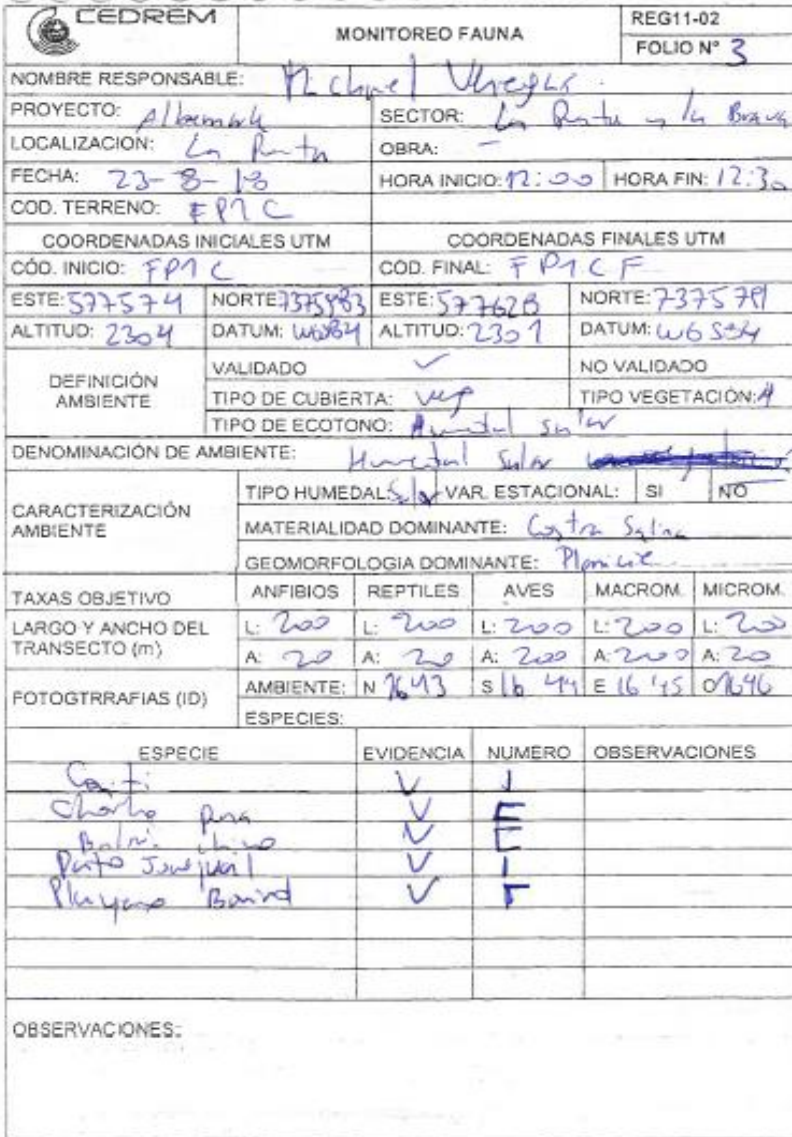 CEDREM
MONITOREO FAUNA
REG11-02
FOLIO N° 3
NOMBRE RESPONSABLE:
PROYECTO: Albemarle
SECTOR: La Punta y la Brava
LOCALIZACION: La Punta
OBRA: -
FECHA: 23-8-18
HORA INICIO: 12:00 HORA FIN: 12:30
COD. TERRENO: FP1C
COORDENADAS INICIALES UTM
COORDENADAS FINALES UTM
CÓD. INICIO: FP1C
COD. FINAL: FP1CF
ESTE: 577574 NORTE
ESTE: 577628 NORTE: 7375791
ALTITUD: 2304 DATUM:
ALTITUD: 2301 DATUM:
DEFINICIÓN AMBIENTE
VALIDADO ✓ NO VALIDADO
TIPO DE CUBIERTA: veg TIPO VEGETACIÓN: A
TIPO DE ECOTONO: Humedal salar
DENOMINACIÓN DE AMBIENTE: Humedal Salar
CARACTERIZACIÓN AMBIENTE
TIPO HUMEDAL: Salar VAR. ESTACIONAL: SI NO
MATERIALIDAD DOMINANTE: Costra Salina
GEOMORFOLOGIA DOMINANTE: Planicie
TAXAS OBJETIVO ANFIBIOS REPTILES AVES MACROM. MICROM.
LARGO Y ANCHO DEL TRANSECTO (m)
L: 200 L: 200 L: 200 L: 200 L: 200
A: 20 A: 20 A: 200 A: 200 A: 20
FOTOGTRRAFIAS (ID)
AMBIENTE: N 1643 S 1644 E 1645 O 1646
ESPECIES:
ESPECIE EVIDENCIA NUMERO OBSERVACIONES
Caiti V
Chorlo Puna V
V
Pato Juarjual V
Playero Baird V
OBSERVACIONES: